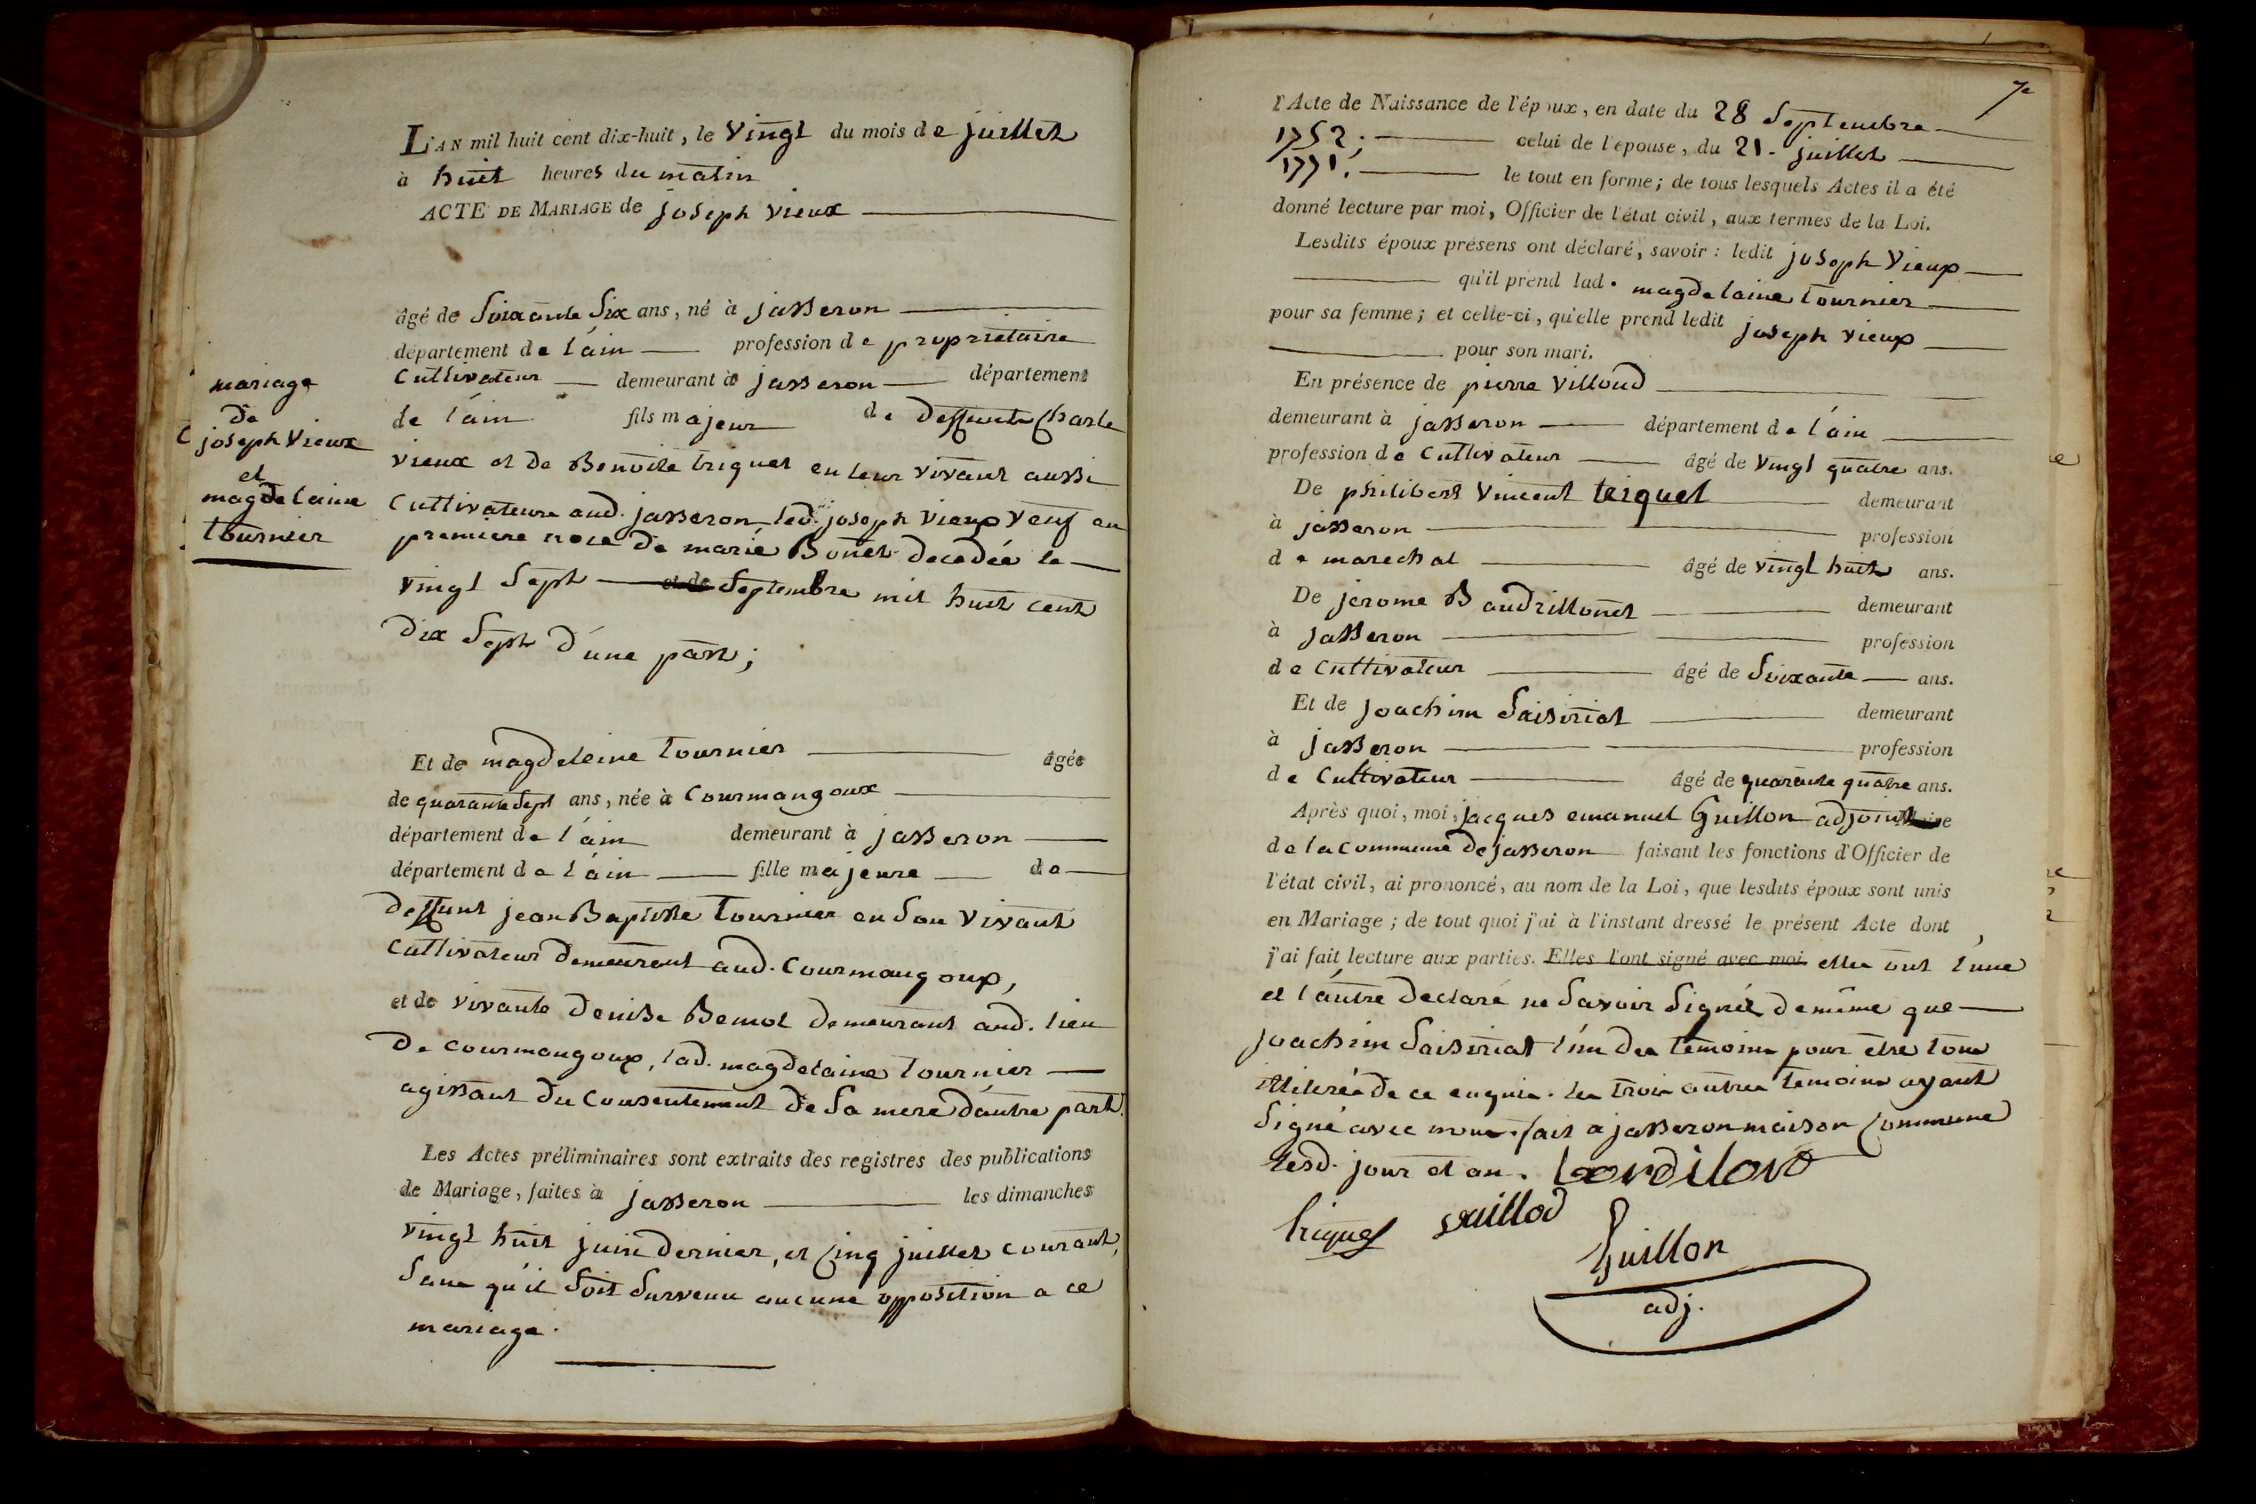 L'AN mil huit cent dix-huit, le vingt du mois de juillet
à huit heures du matin
ACTE DE MARIAGE de joseph vieux
âgé de soixante six ans, né à jasseron
département de l'ain profession de proprietaire
cultivateur demeurant à jasseron département
de l'ain fils majeur de deffunts Charle
vieux et de Benoite triquet en leur vivant aussi
cultivateurs aud. jasseron led. joseph vieux veuf en
premiere noce de marie Bonet decedée le
vingt sept et de septembre mil huit cent
dix sept d'une part;
mariage
de
joseph vieux
et
magdelaine
tournier
Et de magdeleine tournier âgée
de quarante sept ans, née à Courmangoux
département de l'ain demeurant à jasseron
département de l'ain fille majeure de
deffunt jean Baptiste tournier en son vivant
cultivateur demeurant aud. Courmangoux,
et de vivante denise Bemol demeurant aud. lieu
de Courmangoux, lad. magdelaine tournier
agissant du consentement de sa mere d'autre part.
Les Actes préliminaires sont extraits des registres des publications
de Mariage, faites à jasseron les dimanches
vingt huit juin dernier, et cinq juillet courant,
sans qu'il soit survenu aucune opposition a ce
mariage.
7e
l'Acte de Naissance de l'époux, en date du 28 septembre
1752; celui de l'épouse, du 21. juillet
1771; le tout en forme; de tous lesquels Actes il a été
donné lecture par moi, Officier de l'état civil, aux termes de la Loi.
Lesdits époux présens ont déclaré, savoir: ledit joseph vieux
qu'il prend lad. magdelaine tournier
pour sa femme; et celle-ci, qu'elle prend ledit joseph vieux
pour son mari.
En présence de pierre villoud
demeurant à jasseron département de l'ain
profession de cultivateur âgé de vingt quatre ans.
De philibert vincent triquet demeurant
à jasseron profession
de marechal âgé de vingt huit ans.
De jerome Baudrillonet demeurant
à jasseron profession
de cultivateur âgé de soixante ans.
Et de joachim saisiriat demeurant
à jasseron profession
de cultivateur âgé de quarante quatre ans.
Après quoi, moi, jacques emanuel Guillon adjoint Maire
de la commune de jasseron faisant les fonctions d'Officier de
l'état civil, ai prononcé, au nom de la Loi, que lesdits époux sont unis
en Mariage; de tout quoi j'ai à l'instant dressé le présent Acte dont
j'ai fait lecture aux parties. Elles l'ont signé avec moi elles ont l'une
et l'autre declaré ne savoir signer de même que
joachim saisiriat l'un des temoins pour etre tous
illiterés de ce enquis. les trois autres temoins ayant
signé avec nous. fait a jasseron maison Commune
lesd. jour et an.
triquet vuillod
Guillon
adj.